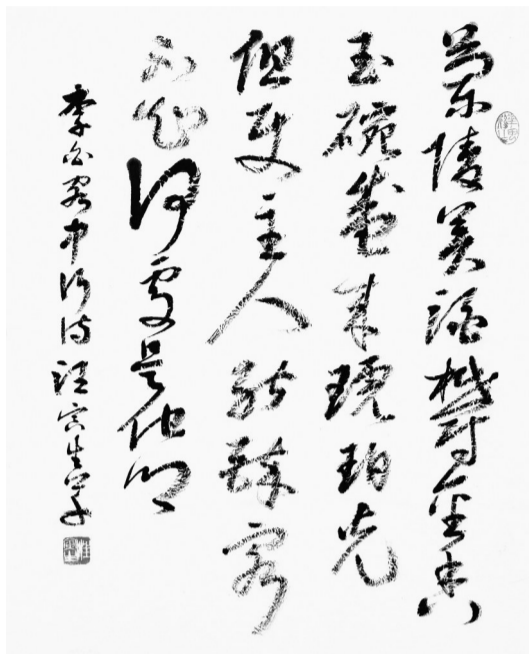 蘭陵美酒鬱金香
玉碗盛来琥珀光
但使主人能醉客
不知何處是他鄉
李白客中行詩 汪寅生字